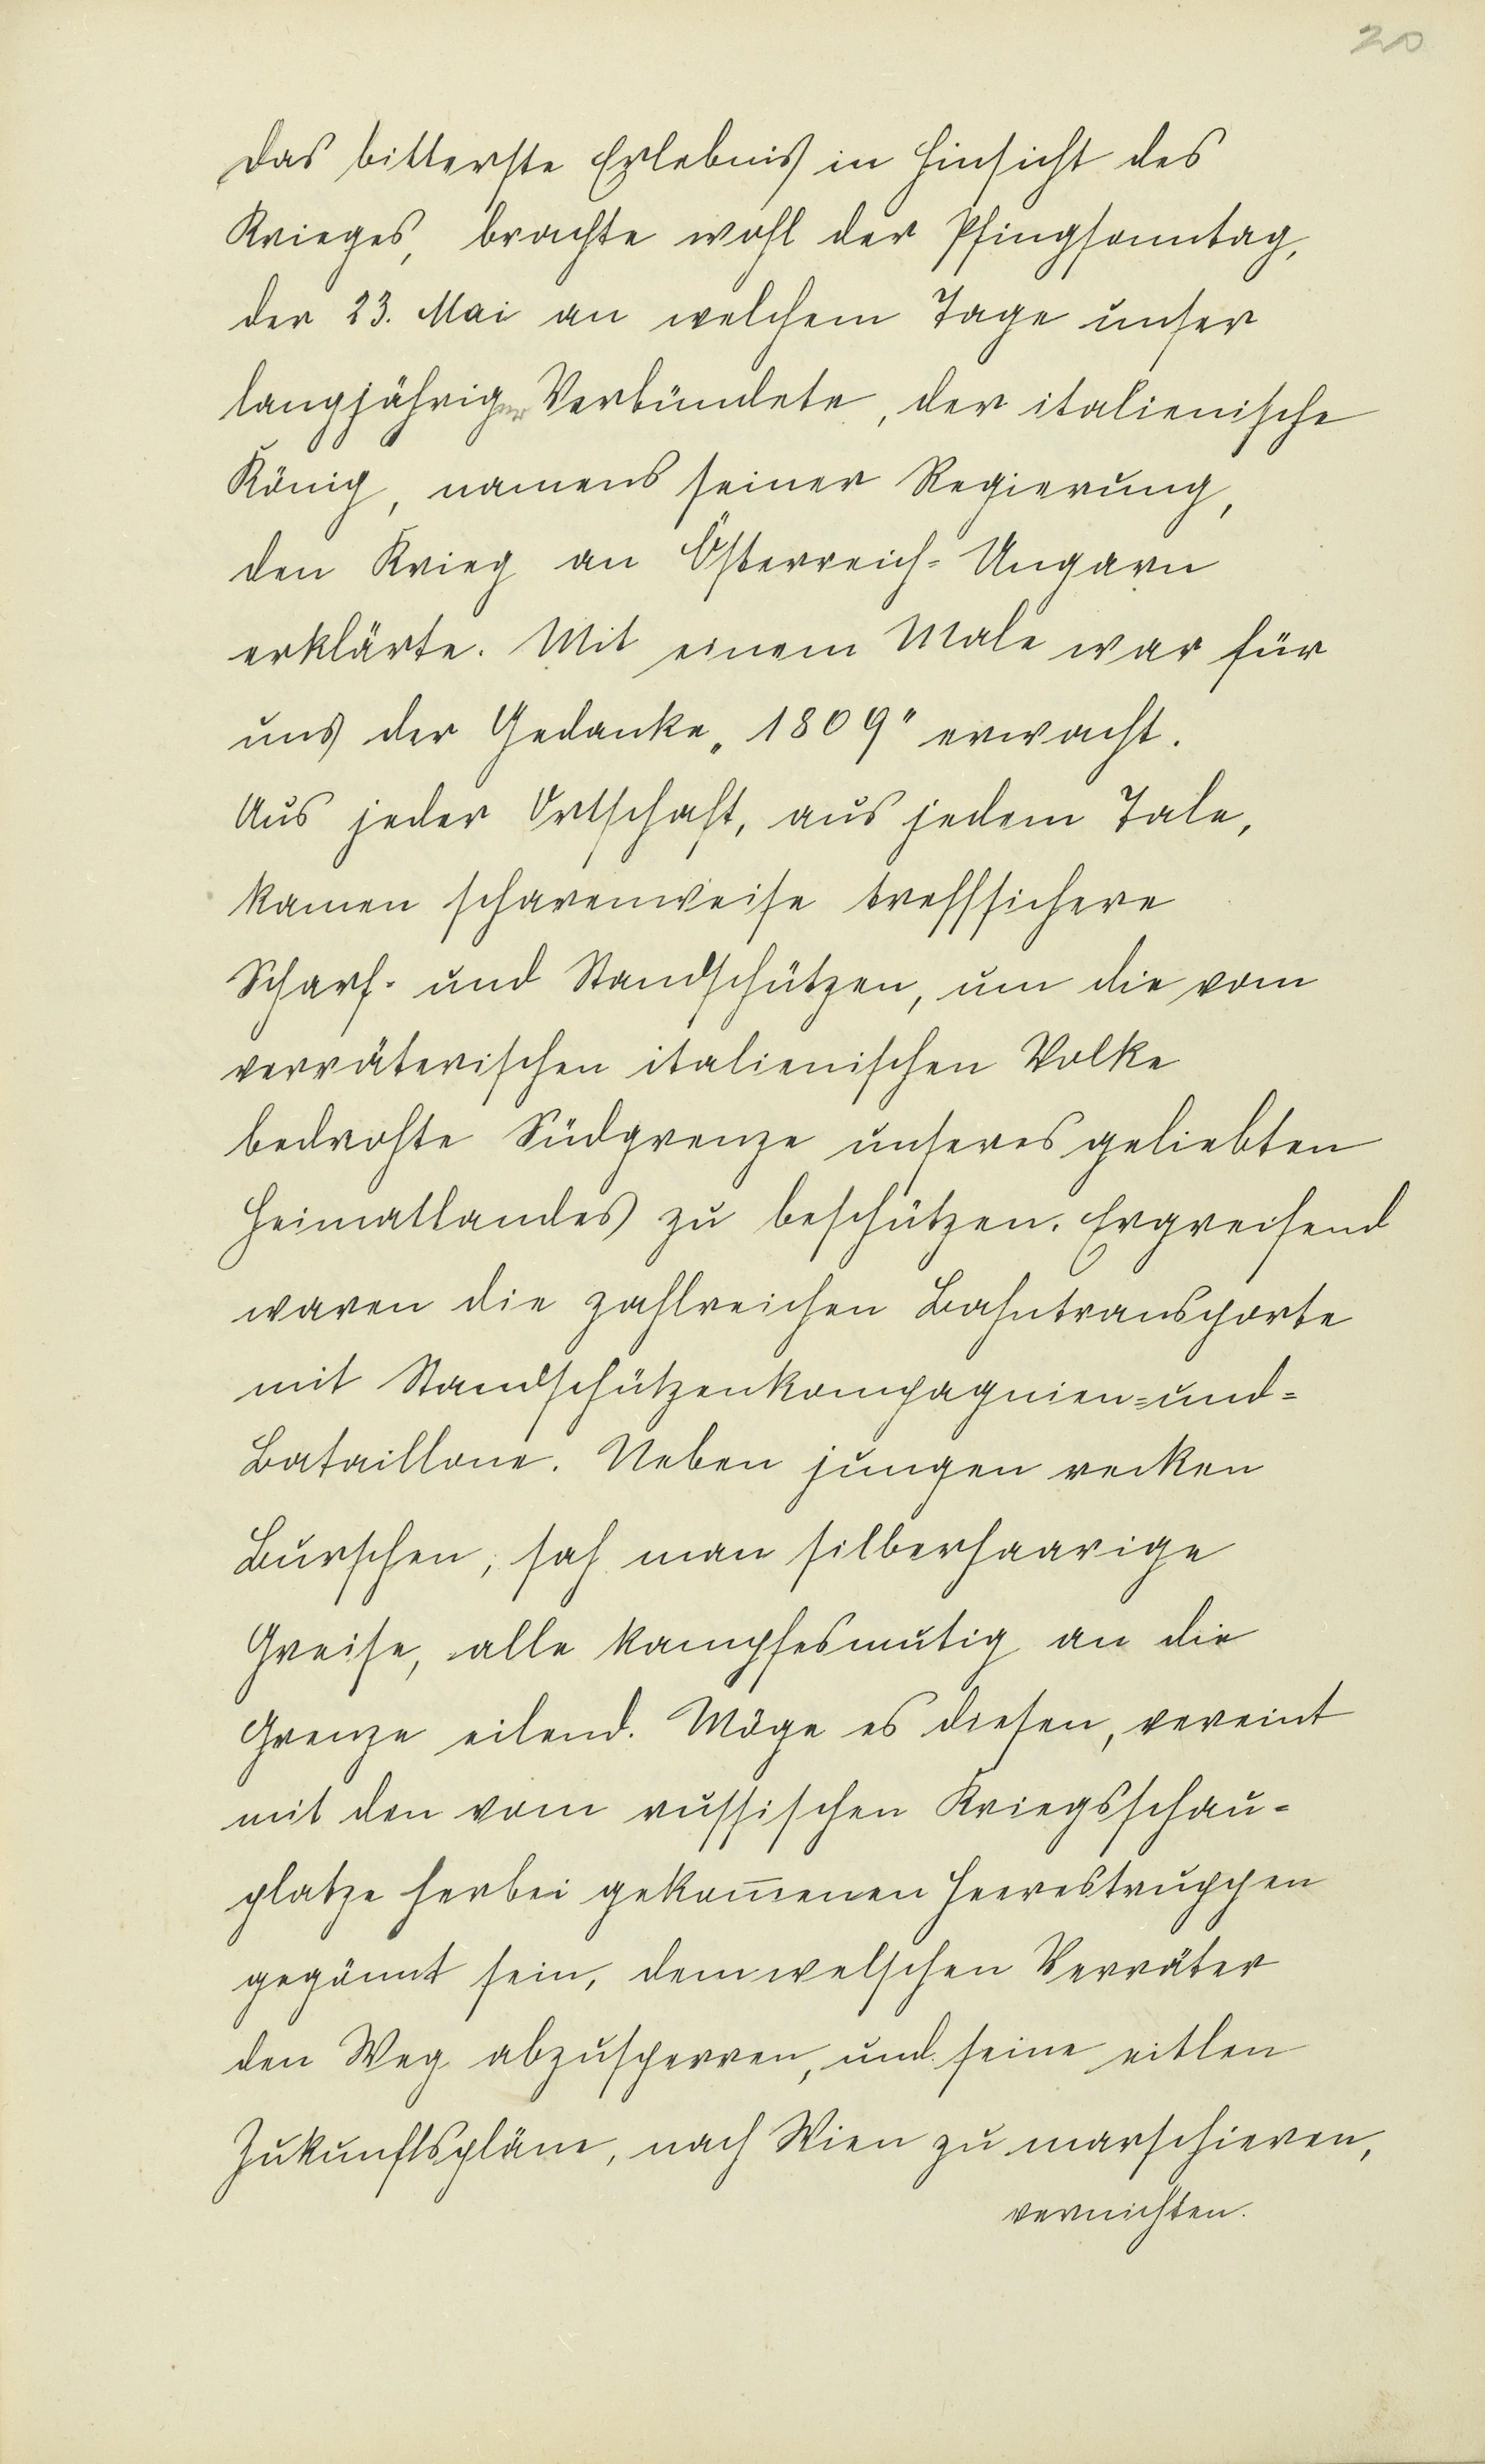 20
Das bitterste Erlebnis in Hinsicht des
Krieges, brachte wohl der Pfingsonntag,
der 23. Mai an welchem Tage unser
langjähriger Verbündete, der italienische
König, namens seiner Regierung,
den Krieg an Österreich-Ungarn
erklärte. Mit einem Male war für
uns der Gedanke „1809" erwacht.
Aus jeder Ortschaft, aus jedem Tale,
kamen scharenweise treffsichere
Scharf- und Standschützen, um die vom
verräterischen italienischen Volke
bedrohte Südgrenze unseres geliebten
Heimatlandes zu beschützen. Ergreifend
waren die zahlreichen Bahntransporte
mit Standschützenkompagnien-und-
Bataillone. Neben jungen recken
Burschen, sah man silberhaarige
Greise, alle kampfesmutig an die
Grenze eilend. Möge es diesen, vereint
mit den vom russischen Kriegsschau-
platze herbei gekom̄enen Heerestruppen
gegönnt sein, dem welschen Verräter
den Weg abzusperren, und seine eitlen
Zukunftspläne, nach Wien zu marschieren,
vernichten.